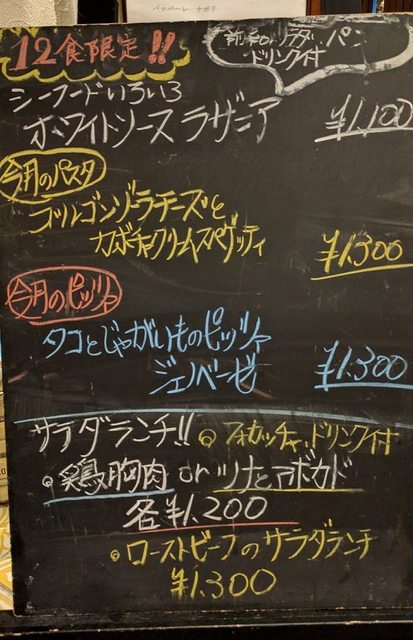 パッパーレ ナポリ
12食限定!!
前菜orサラダ、パン
ドリンク付
シーフードいろいろ
ホワイトソース ラザニア ¥1,100
今月のパスタ
ゴルゴンゾーラチーズと
カボチャクリームスパゲッティ
¥1,300
今月のピッツァ
タコとじゃがいものピッツァ
ジェノベーゼ ¥1,300
サラダランチ!! フォカッチャ、ドリンク付
鶏胸肉 or ツナとアボカド
各¥1,200
ローストビーフのサラダランチ
¥1,300